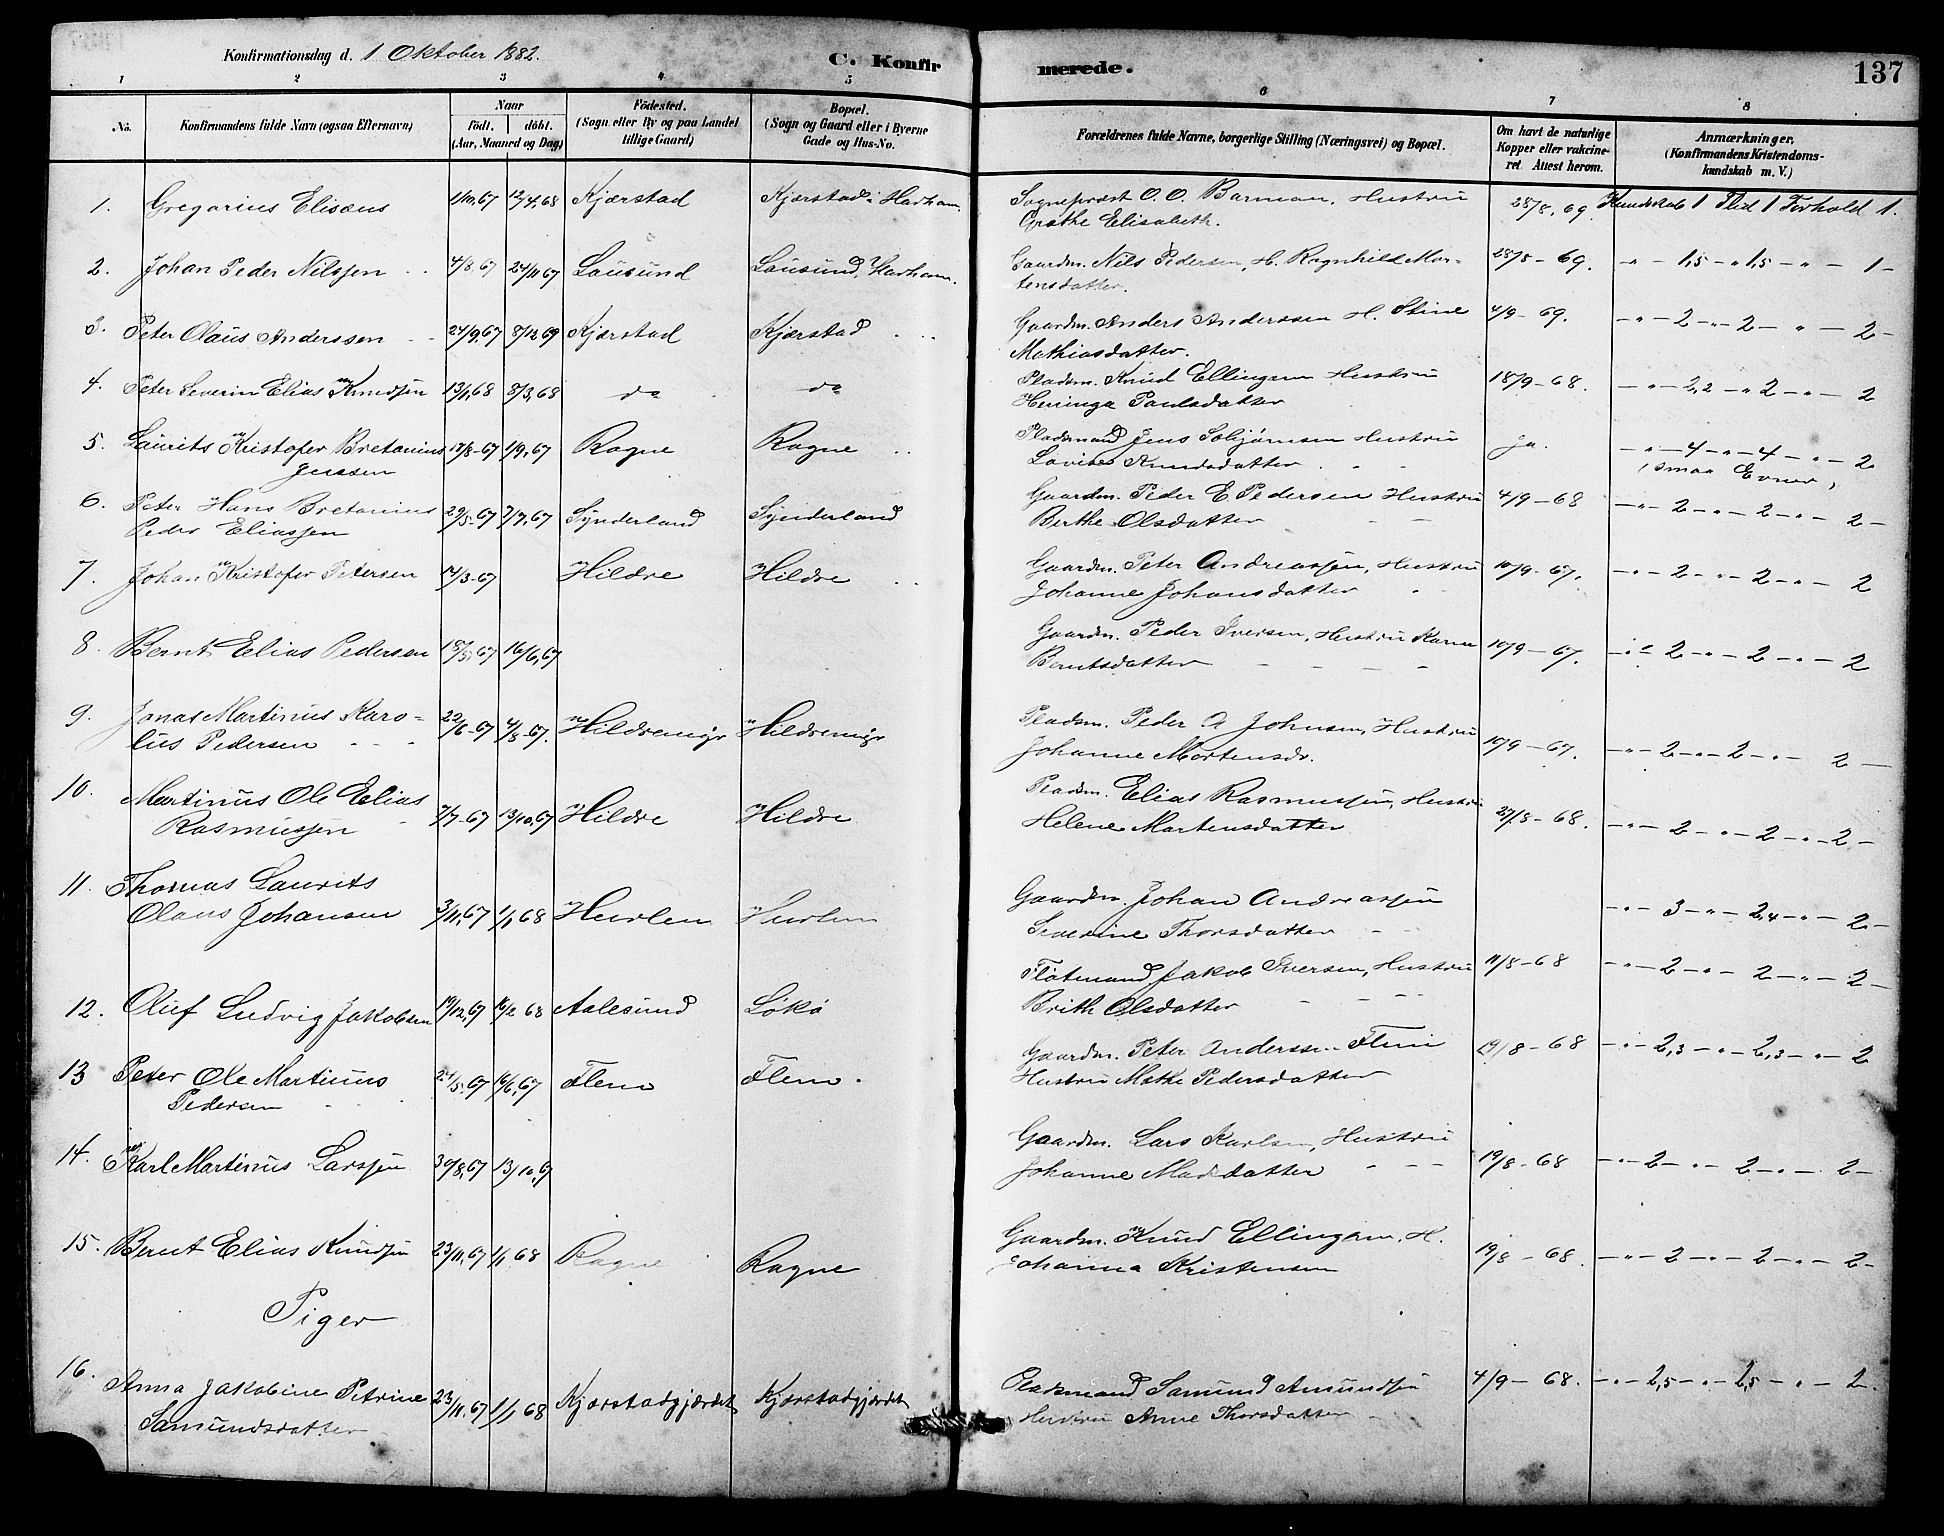 Konfirmationsdag d. 1 Oktober 1882. C. Konfir merede. 137
1 2 3 4 5 6 7 8
No. Konfirmandens fulde Navn (ogsaa Efternavn) Naar födt. döbt. (Aar, Maaned og Dag) Födested. (Sogn eller By og paa Landet tillige Gaard) Bopæl. (Sogn og Gaard eller i Byerne Gade og Hus-No. Forældrenes fulde Navne, borgerlige Stilling (Næringsvei) og Bopæl. Om havt de naturlige Kopper eller vakcineret. Attest herom. Anmærkninger. (Konfirmandens Kristendomskundskab m. V.)
1. Gregorius Elisæus 12/4,68 Kjærstad Kjærstad i Harham. Sognepræst O. O. Barman, Hustru 28/8, 69. Kundskab 1 Flid 1 Forhold 1.
Grethe Elisabeth.
2. Johan Peder Nilssen 4/8 67 24/11 67 Lausund Lausund, Harham. Gaardm. Nils Pedersen, H. Ragnhild Mor- 28/8 - 69. - " - 1,5 - " 1,5 - " - 1 -
tensdatter.
3. Peter Olaus Anderssen 24/9,67 8/12 69 Kjærstad Kjærstad Gaardm. Anders Anderssen H. Stine 4/9 - 69. - " - 2 - " - 2 - " - 2 -
Mathiasdatter.
4. Peter Severin Elias Knudsen 12/1,68 8/3,68 do do Pladsm. Knud Ellingsen Hustru 18/9 - 68. - " - 2,2 - " 2 - " - 2
Paulsdatter
5. Laurits Kristofer Bretanius 1/9,67 Rogne Rogne Pladsmand Jens Solbjørnsen Hustru Ja. - " - 4 - " - 4 - " - 2
Jenssen Lovise Knudsdatter (smaa Evner)
6. Peter Hans Bretanius 29/5-67 7/7,67 Synderland Synderland Gaardm. Peder E. Pedersen Hustru 4/9 - 68 - " - 2 - " - 2 - " - 2 -
Peder Eliassen Berthe Olsdatter
7. Johan Kristofer Petersen 14/3-67 Hildre Hildre Gaardm. Peter Andreassen, Hustru 10/9 - 67. - " - 2 - " - 2 - " - 2
Johanne Johansdatter
8. Bernt Elias Pedersen 18/5,67 16/6,67 Gaardm. Peder Iversen, Hustru Karen 10/9 - 67. - " - 2 - " - 2 - " - 2
Berntsdatter
9. Jonas Martinus Karo- 22/6-67 4/8-67. Hildremyr Hildremyr Pladsm. Peder A Johnsen, Hustru 10/9 - 67. - " - 2 - " - 2 - " - 2 -
lus Pedersen Johanne Mortensdr.
10. Martinus Ole Elias 7/7-67 13/10,67 Hildre Hildre Pladsm. Elias Rasmussen, Hustru 27/8 - 68. - " - 2 - " - 2 - " - 2 -
Rasmussen Helene Martensdatter
11. Thomas Laurits 3/11,67 1/1 68 Hurlen Hurlen Gaardm. Johan Andreassen - " - 3 - " - 2,4 - " - 2 -
Olaus Johansen Severine Thorsdatter
12. Oluf Ludvig Jakobsen 19/12,67 16/2 68 Aalesund Løkø Flotmand Jakob Iversen, Hustru 11/8 - 68 - " - 2 - " - 2 - " - 2 -
Brith Olsdatter
13 Peter Ole Martinus 24/5-67 16/6,67 Flem Flem. Gaardm. Peter Anderssen Flem 19/8 - 68 - " - 2,3 - " - 2,3 - " - 2
Pedersen Hustru Mathe Pedersdatter
14. Karl Martinus Larssen 30/8,67 13/10,67 Gaardm. Lars Karlsen, Hustru 19/8 - 68 - " - 2 - " - 2 - " - 2 -
Johanne Madsdatter
15. Bernt Elias Knudsen 23/11,67 1/1 68 Rogne Rogne Gaardm. Knud Ellingsen, H. 19/8 - 68. - " - 2 - " - 2 - " - 2 -
Johanna Kristensen
Piger
16. Anna Jakobine Petrine 23/11,67 1/1 68 Kjærstadgjærdet Kjærstadgjærdet Pladsmand Samund Amundsen 4/9 - 68. - " - 2,5 - " - 2,5 - " - 2.
Samundsdatter Hustru Anne Thorsdatter